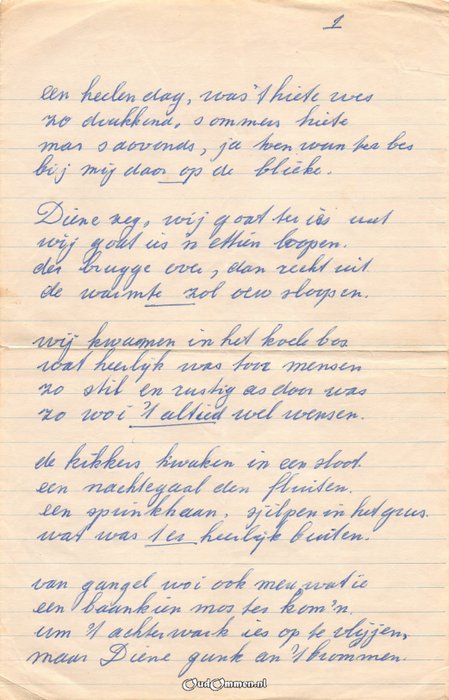 1
een heelen dag, was 't hiete wes
zo drukkend, sommers hiete
mar saovonds, ja toen wun ter bes
bij mij daor op de blieke.
Diene zeg, wij goat ter ies uut
wij goat ies 'n ettien loopen.
der brugge over, dan recht uit
de warmte zol oew sloopen.
wij kwaamen in het koele bos
wat heerlijk was toor mensen
zo stil en rustig as door was
zo woi 't altied wel wensen.
de kikkers kwaken in een sloot
een nachtegaal den fluiten.
een spunkhaan, sjilpen in het grus.
wat was ter heerlijk buiten.
van gangel woi ook meu, wat ie
een baankien mos ter kom'n.
um 't achterwark ies op te vlijjen,
maar Diene gunk an 't brommen.
OudOmmen.nl